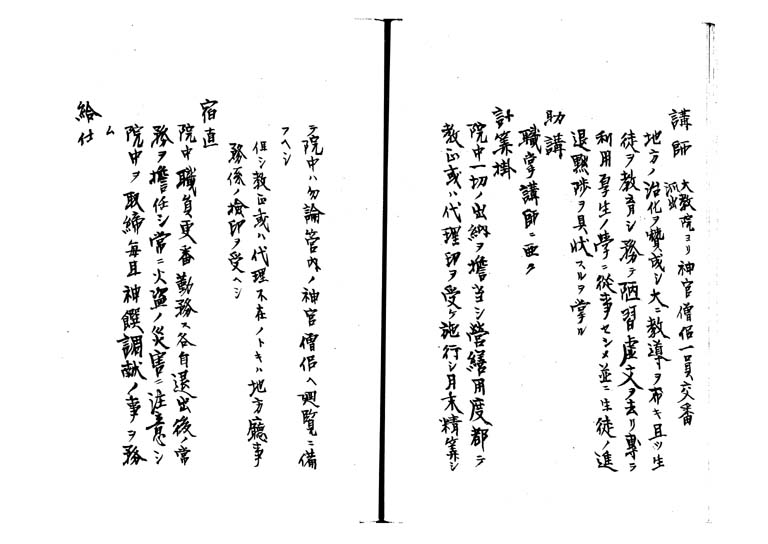 講師 大教院ヨリ神官僧侶一員交番
派出
地方ノ治化ヲ賛成シ大ニ教導ヲ布キ且ツ生
徒ヲ教育シ務テ陋習虚文ヲ去リ専ラ
利用厚生ノ学ニ従事セシメ並ニ生徒ノ進
退黙陟ヲ具状スルヲ掌ル
助講
職掌講師ニ亜ク
計算掛
院中一切ノ出納ヲ擔当シ営繕用度都テ
教正或ハ代理印ヲ受ケ施行シ月末精算シ
テ院中ハ勿論管内ノ神官僧侶ヘ興覧ニ備
フヘシ
但シ教正或ハ代理不在ノトキハ地方廳事
務係ノ検印ヲ受ヘシ
宿直
院中職員更番勤務ス各自退出後ノ常
務ヲ擔任シ常ニ火盗ノ災害ニ注意シ
院中ヲ取締毎且神饌調献ノ事ヲ務
ム
給仕